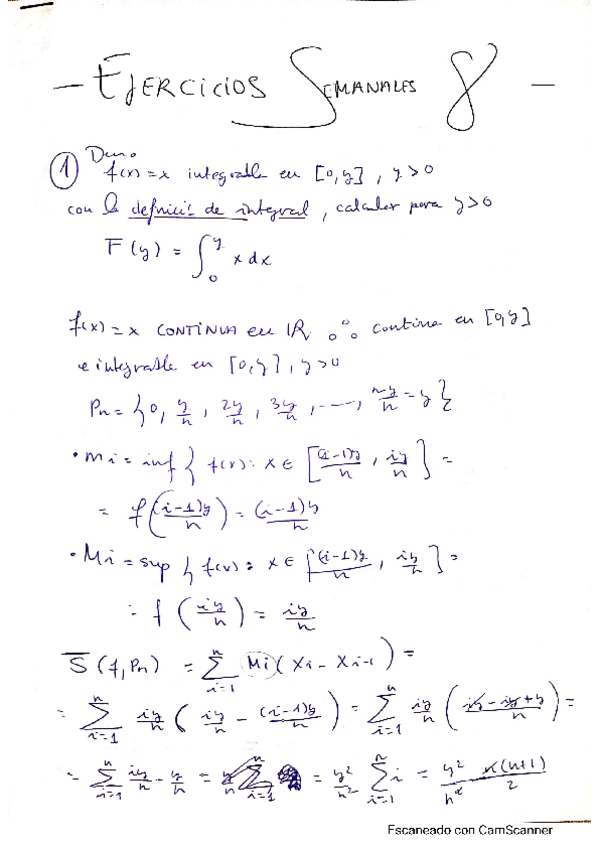 - EJERCICIOS SEMANALES 8 -
① Dem. f(x) = x integrable en [0,y], y > 0
con la definición de integral, calcular para y > 0
F(y) = ∫₀^y x dx
f(x) = x CONTINUA en ℝ ∴ continua en [0,y]
e integrable en [0,y], y > 0
Pn = {0, y/n, 2y/n, 3y/n, ..., n·y/n = y}
• mi = inf { f(x): x ∈ [(i-1)y/n, iy/n] } =
= f((i-1)y/n) = (i-1)y/n
• Mi = sup { f(x): x ∈ [(i-1)y/n, iy/n] } =
= f(iy/n) = iy/n
S̅(f,Pn) = Σ_{i=1}^{n} Mi(xi - xi-1) =
= Σ_{i=1}^{n} iy/n (iy/n - (i-1)y/n) = Σ_{i=1}^{n} iy/n ((iy - iy + y)/n) =
= Σ_{i=1}^{n} iy/n · y/n = = y²/n² Σ_{i=1}^{n} i = y²/n² n(n+1)/2
Escaneado con CamScanner